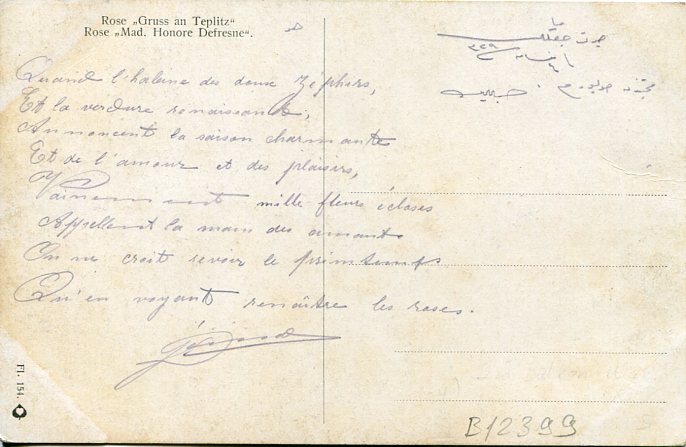 Rose „Gruss an Teplitz“
Rose „Mad. Honore Defresne“.
Quand l'haleine des doux Zephirs,
Et la verdure renaissante,
Annoncent la saison charmante
Et de l'amour et des plaisirs,
Vainement mille fleurs écloses
Appellent la main des amants
On ne croit revoir le printemps
Qu'en voyant renaître les roses.
Fl. 154.
B12399